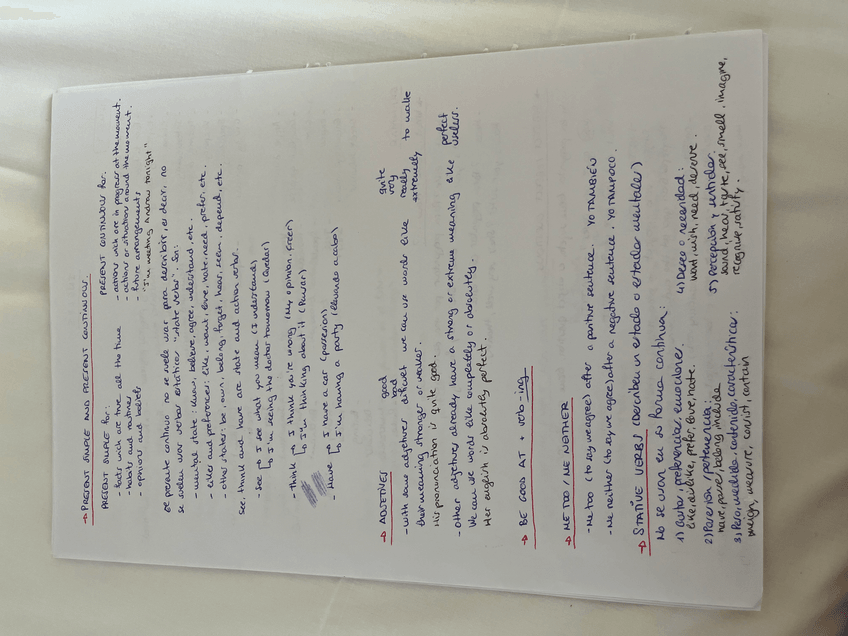 → PRESENT SIMPLE AND PRESENT CONTINUOUS.
PRESENT SIMPLE for:
- facts wich are true all the time
- habits and routines
- opinions and beliefs
PRESENT CONTINUOUS for:
- actions wich are in progress at the moment.
- actions or situations around the moment.
- future arrangements
"I'm meeting Andrew tonight"
se suele usar para describir, es decir, no
se suelen usar verbos estáticos "state verbs". Son:
- mental state: know, believe, agree, understand, etc.
- likes and preferences: like, want, love, hate, need, prefer, etc.
- other states: be, own, belong, forget, hear, seem, depend, etc.
see, think and have are state and action verbs.
- see ↳ I see what you mean (I understand)
↳ I'm seeing the doctor tomorrow (quedar)
- think ↳ I think you're wrong (my opinion, creer)
↳ I'm thinking about it (pensar)
- Have ↳ I have a car (possesion)
↳ I'm having a party (llevando a cabo)
→ ADJETIVES
good
- with some adjetives difficult we can use words like
quite
very
really
extremely
to make
their meaning stronger or weaker.
His pronunciation is quite good.
- Other adjetives already have a strong or extreme meaning like
perfect
useless.
We can use words like completely or absolutely.
Her english is absolutely perfect.
→ BE GOOD AT + verb-ing
→ ME TOO / ME NEITHER
- Me too (to say we agree) after a positive sentence. YO TAMBIÉN
- Me neither (to say we agree) after a negative sentence. YO TAMPOCO.
→ STATIVE VERBS (describen un estado o estados mentales)
No se usan en su forma continua:
1) Gustos, preferencias, emociones.
like, dislike, prefer, love, hate.
2) Posesión / pertenencia:
have, belong, include
3) Peso, medidas, contenido, características:
weigh, measure, consist, contain
4) Deseo o necesidad:
want, wish, need, deserve.
5) Percepción y sentidos:
sound, hear, taste, see, smell, imagine,
recognise, satisfy.